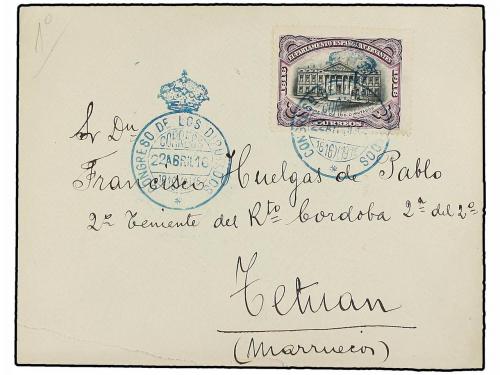 1º
CONGRESO DE LOS DIPUTADOS
CORREOS
22 ABRIL 16
CORREOS
1916
1916
22 ABRIL 16
Sr Dn
Francisco Huelgas de Pablo
2º Teniente del Rto Cordoba 2ª del 2º
Tetuan
(Marruecos)